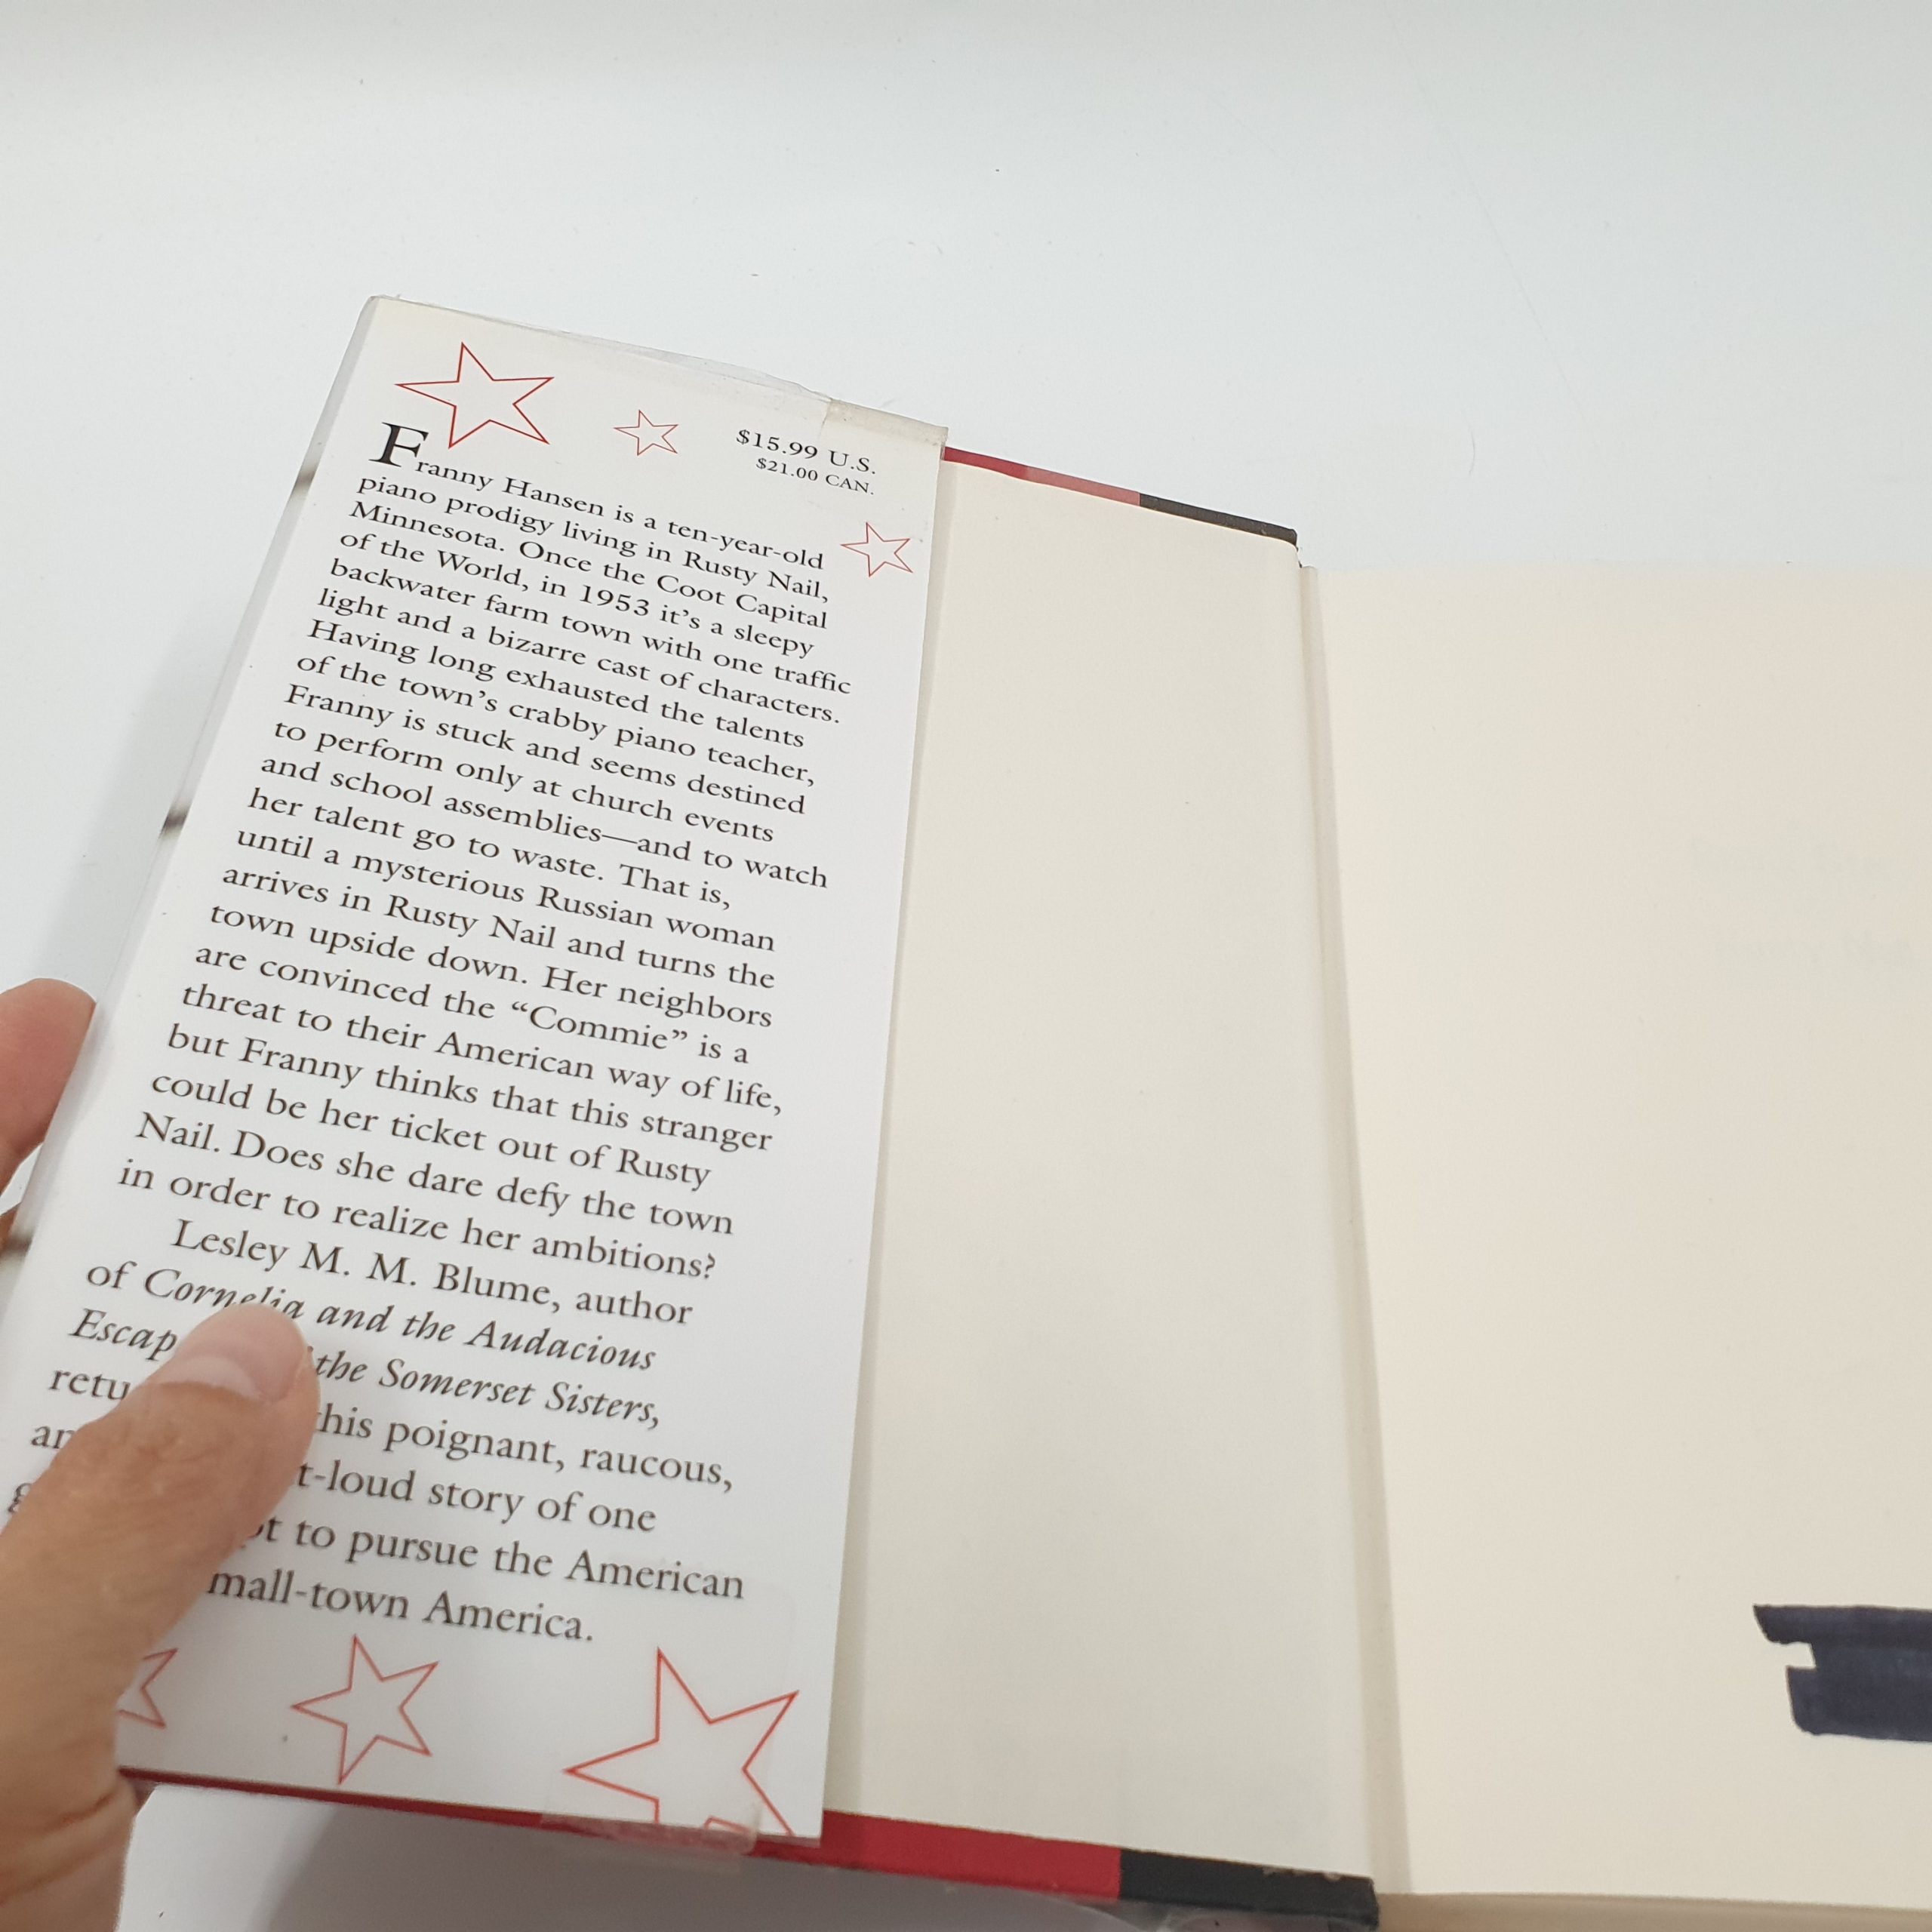 $15.99 U.S.
$21.00 CAN.
Franny Hansen is a ten-year-old
piano prodigy living in Rusty Nail,
Minnesota. Once the Coot Capital
of the World, in 1953 it's a sleepy
backwater farm town with one traffic
light and a bizarre cast of characters.
Having long exhausted the talents
of the town's crabby piano teacher,
Franny is stuck and seems destined
to perform only at church events
and school assemblies—and to watch
her talent go to waste. That is,
until a mysterious Russian woman
arrives in Rusty Nail and turns the
town upside down. Her neighbors
are convinced the “Commie” is a
threat to their American way of life,
but Franny thinks that this stranger
could be her ticket out of Rusty
Nail. Does she dare defy the town
in order to realize her ambitions?
Lesley M. M. Blume, author
of Cornelia and the Audacious
the Somerset Sisters,
this poignant, raucous,
story of one
to pursue the American
America.